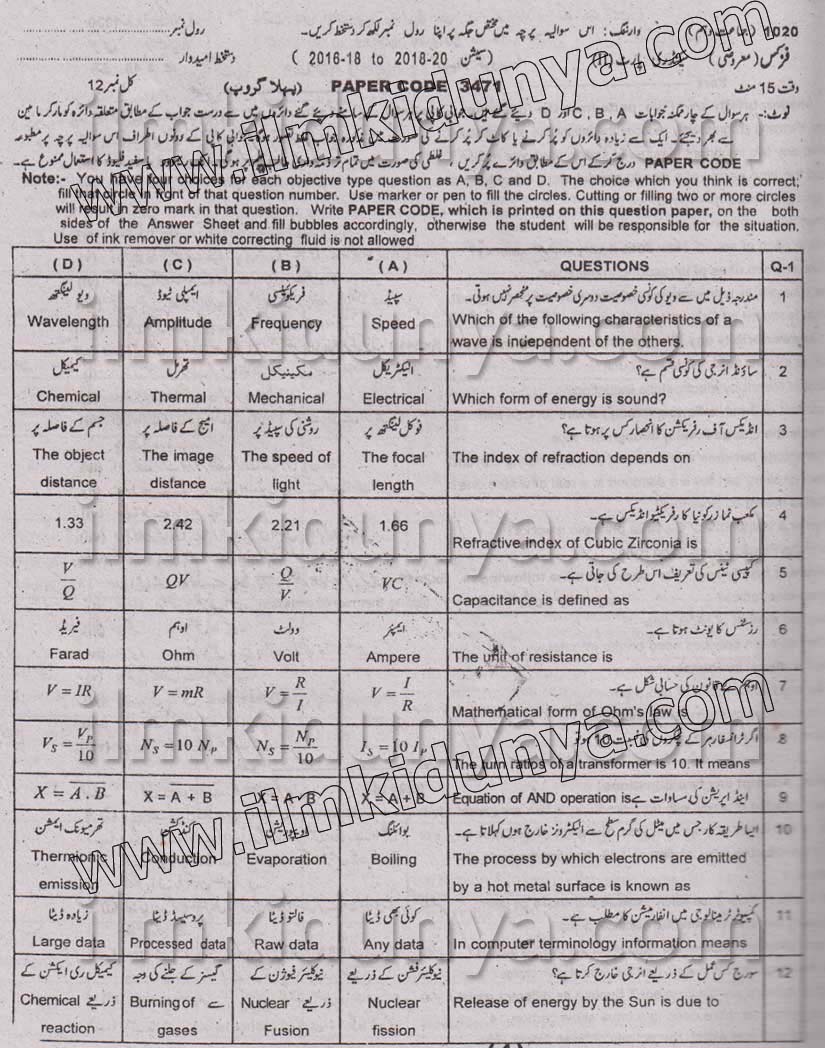 1020 وارننگ: اس سوالیہ پرچہ میں مختص جگہ پر اپنا رول نمبر لکھ کر دستخط کریں۔ رول نمبر
فزکس (معروضی) (سیشن 2018-20 to 2016-18) دستخط امیدوار
وقت 15 منٹ PAPER CODE 3471 (پہلا گروپ) کل نمبر 12
نوٹ:- ہر سوال کے چار ممکنہ جوابات A, B, C اور D دیئے گئے ہیں۔ جوابی کاپی پر ہر سوال کے سامنے دیئے گئے دائروں میں سے درست جواب کے مطابق متعلقہ دائرہ کو مارکر یا پین
سے بھر دیجئے۔ ایک سے زیادہ دائروں کو پُر کرنے یا کاٹ کر پُر کرنے کی صورت میں جوابی کاپی کے دونوں اطراف اس سوالیہ پرچہ پر مطبوعہ
PAPER CODE درج کر کے اس کے مطابق دائرے پُر کریں، غلطی کی صورت میں تمام تر ذمہ داری طالب علم پر ہوگی۔ سفید فلیوڈ کا استعمال ممنوع ہے۔
Note:- You have four choices for each objective type question as A, B, C and D. The choice which you think is correct;
fill that circle in front of that question number. Use marker or pen to fill the circles. Cutting or filling two or more circles
will result in zero mark in that question. Write PAPER CODE, which is printed on this question paper, on the both
sides of the Answer Sheet and fill bubbles accordingly, otherwise the student will be responsible for the situation.
Use of ink remover or white correcting fluid is not allowed
(D) (C) (B) (A) QUESTIONS Q-1
ویو لینگتھ ایمپلی ٹیوڈ فریکوئنسی سپیڈ مندرجہ ذیل میں سے ویو کی کونسی خصوصیت دوسری خصوصیت پر منحصر نہیں ہوتی۔ 1
Wavelength Amplitude Frequency Speed Which of the following characteristics of a
wave is independent of the others.
کیمیکل تھرمل مکینیکل الیکٹریکل ساؤنڈ انرجی کی کونسی قسم ہے؟ 2
Chemical Thermal Mechanical Electrical Which form of energy is sound?
جسم کے فاصلہ پر امیج کے فاصلہ پر روشنی کی سپیڈ پر فوکل لینگتھ پر انڈیکس آف رفریکشن کا انحصار کس پر ہوتا ہے؟ 3
The object The image The speed of The focal The index of refraction depends on
distance distance light length
1.33 2.42 2.21 1.66 مکعب نما زرکونیا کا رفریکٹو انڈیکس ہے۔ 4
Refractive index of Cubic Zirconia is
V/Q QV Q/V VC کپیسی ٹینس کی تعریف اس طرح کی جاتی ہے۔ 5
Capacitance is defined as
فیریڈ اوہم وولٹ ایمپئر رزسٹنس کا یونٹ ہوتا ہے۔ 6
Farad Ohm Volt Ampere The unit of resistance is
V = IR V = mR V = R/I V = I/R اوہم کے قانون کی حسابی شکل ہے۔ 7
Mathematical form of Ohm's law is
V_S = V_P/10 N_S = 10 N_P N_S = N_P/10 I_S = 10 I_P 8
The turn ratios of a transformer is 10. It means
X = \overline{A . B} X = \overline{A + B} X = A . B X = A + B Equation of AND operation is اینڈ آپریشن کی مساوات ہے 9
تھرمیونک ایمشن کنڈکشن بوائلنگ ایسا طریقہ کار جس میں میٹل کی گرم سطح سے الیکٹرونز خارج ہوں کہلاتا ہے۔ 10
Thermionic Conduction Evaporation Boiling The process by which electrons are emitted
emission by a hot metal surface is known as
زیادہ ڈیٹا پروسیسڈ ڈیٹا فالتو ڈیٹا کوئی بھی ڈیٹا کمپیوٹر ٹرمینالوجی میں انفارمیشن کا مطلب ہے۔ 11
Large data Processed data Raw data Any data In computer terminology information means
کیمیکل ری ایکشن کے گیسز کے جلنے کی وجہ نیوکلیئر فیوژن کے نیوکلیئر فشن کے ذریعے سورج کس عمل کے ذریعے انرجی خارج کرتا ہے؟ 12
ذریعے Chemical سے Burning of ذریعے Nuclear Nuclear Release of energy by the Sun is due to
reaction gases Fusion fission
www.ilmkidunya.com
www.ilmkidunya.com
ilmkidunya.com
ilmkidunya.com
ilmkidunya.com
ilmkidunya.com
ilmkidunya.com
ilmkidunya.com